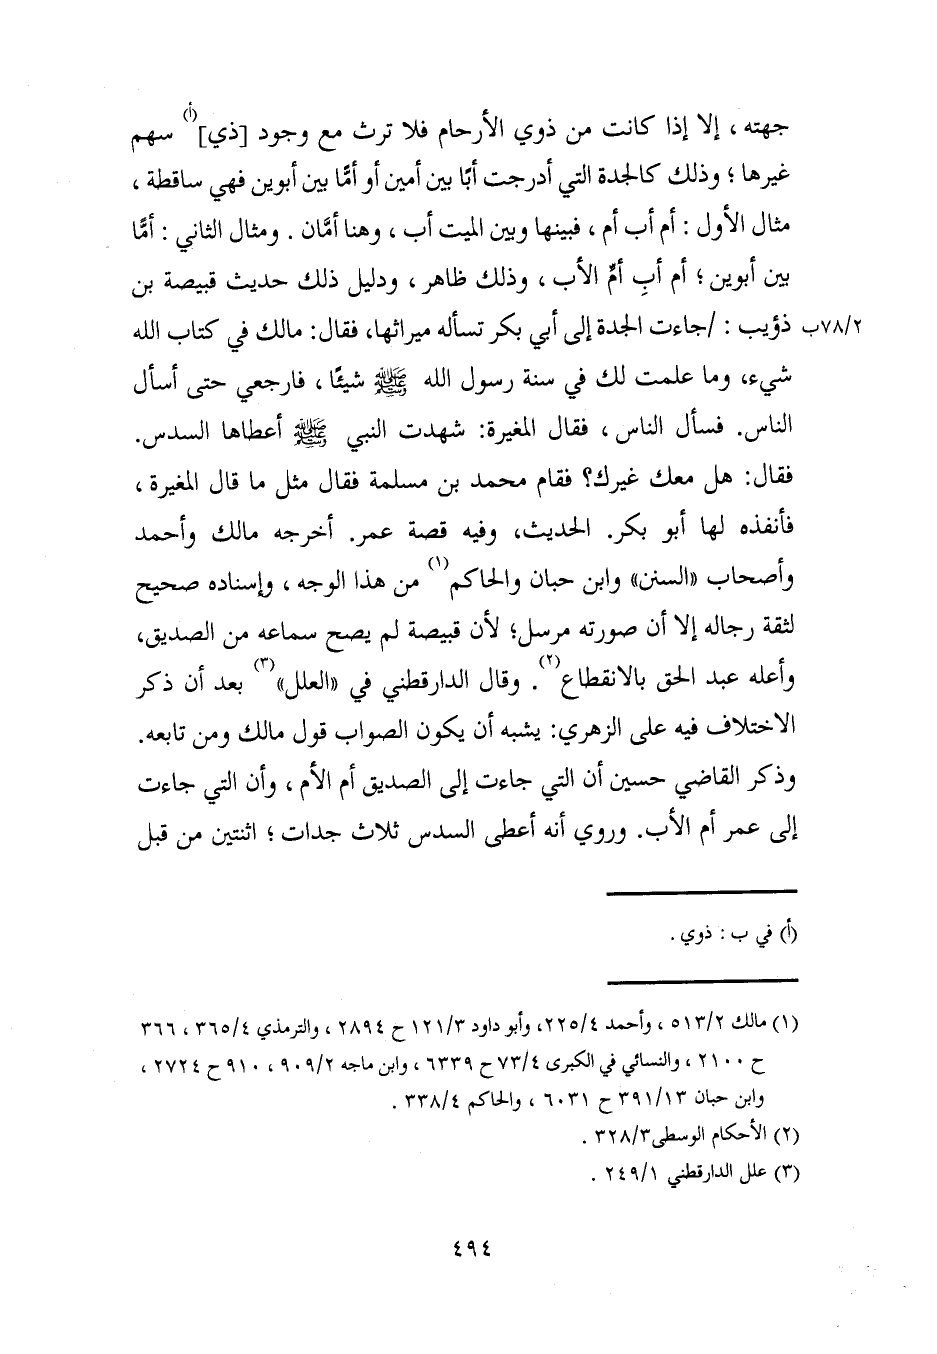 جهته ، إلا إذا كانت من ذوي الأرحام فلا ترث مع وجود [ذي](أ) سهم
غيرها ؛ وذلك كالجدة التي أدرجت أبًا بين أمين أو أمًّا بين أبوين فهي ساقطة ،
مثال الأول : أم أب أم ، فبينها وبين الميت أب ، وهنا أمَّان . ومثال الثاني : أمًّا
بين أبوين ؛ أم أبِ أمِّ الأب ، وذلك ظاهر ، ودليل ذلك حديث قبيصة بن
٧٨/٢ب ذؤيب : /جاءت الجدة إلى أبي بكر تسأله ميراثها، فقال: مالك في كتاب الله
شيء، وما علمت لك في سنة رسول الله ﷺ شيئًا ، فارجعي حتى أسأل
الناس. فسأل الناس ، فقال المغيرة: شهدت النبي ﷺ أعطاها السدس.
فقال: هل معك غيرك؟ فقام محمد بن مسلمة فقال مثل ما قال المغيرة ،
فأنفذه لها أبو بكر. الحديث، وفيه قصة عمر. أخرجه مالك وأحمد
وأصحاب «السنن» وابن حبان والحاكم(١) من هذا الوجه ، وإسناده صحيح
لثقة رجاله إلا أن صورته مرسل؛ لأن قبيصة لم يصح سماعه من الصديق،
وأعله عبد الحق بالانقطاع(٢). وقال الدارقطني في «العلل»(٣) بعد أن ذكر
الاختلاف فيه على الزهري: يشبه أن يكون الصواب قول مالك ومن تابعه.
وذكر القاضي حسين أن التي جاءت إلى الصديق أم الأم ، وأن التي جاءت
إلى عمر أم الأب. وروي أنه أعطى السدس ثلاث جدات ؛ اثنتين من قبل
(أ) في ب : ذوي .
(١) مالك ٥١٣/٢ ، وأحمد ٢٢٥/٤، وأبو داود ١٢١/٣ ح ٢٨٩٤ ، والترمذي ٣٦٥/٤ ، ٣٦٦
ح ٢١٠٠ ، والنسائي في الكبرى ٧٣/٤ ح ٦٣٣٩ ، وابن ماجه ٩٠٩/٢ ، ٩١٠ ح ٢٧٢٤ ،
وابن حبان ٣٩١/١٣ ح ٦٠٣١ ، والحاكم ٣٣٨/٤ .
(٢) الأحكام الوسطى٣٢٨/٣ .
(٣) علل الدارقطني ٢٤٩/١ .
٤٩٤